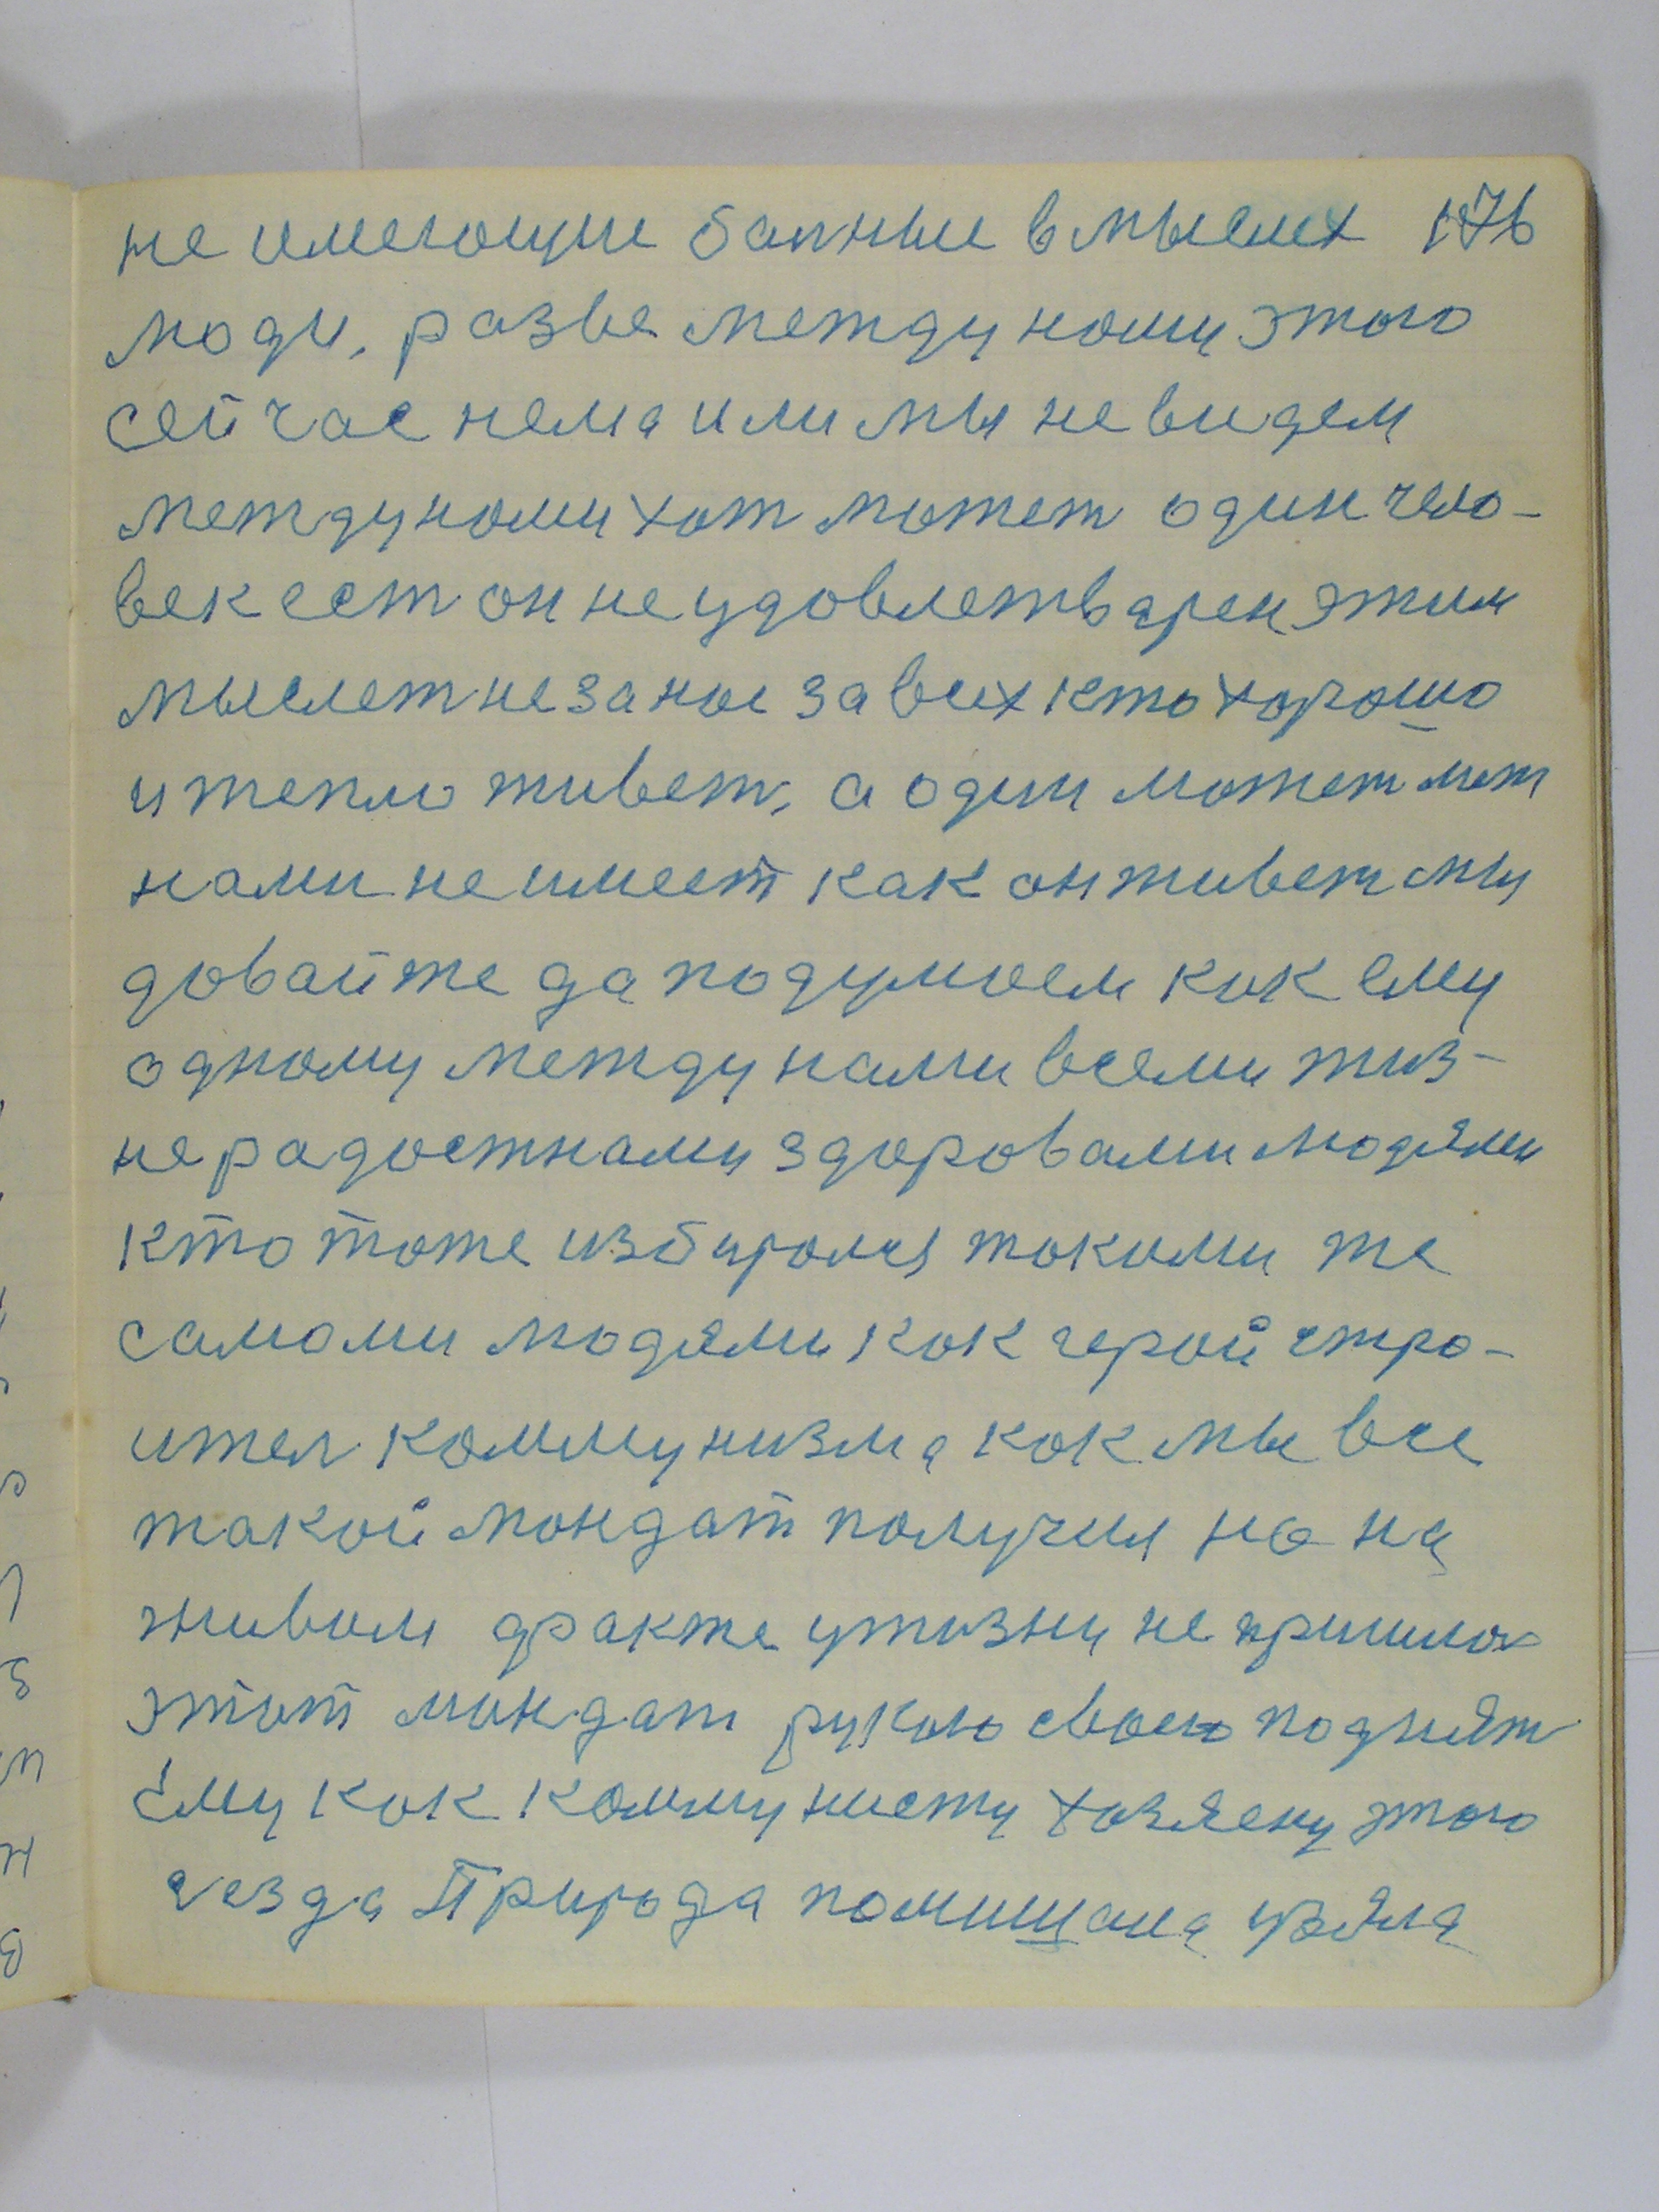 не имеющие банные в мыслех 176
люди, разве между номи этого
сейчас нема или мы не видем
между номи хот может один чело-
век ест он не удовлетварен этим
мыслет не за нас за всех кто хорошо
и тепло живет, а один может меж
нами не имеет как он живет мы
довайте да подумоем как ему
одному между нами всеми жиз-
не радостнами здоровами людями
кто тоже избирался токими же
самоми людями как герой стро-
ител коммунизма как мы все
такой мондат получил но на
живом факте ужизни не пришлос
этот мондат рукою своею поднят
ему как коммунисту хозяену этого
сезда Природа помишала узяла